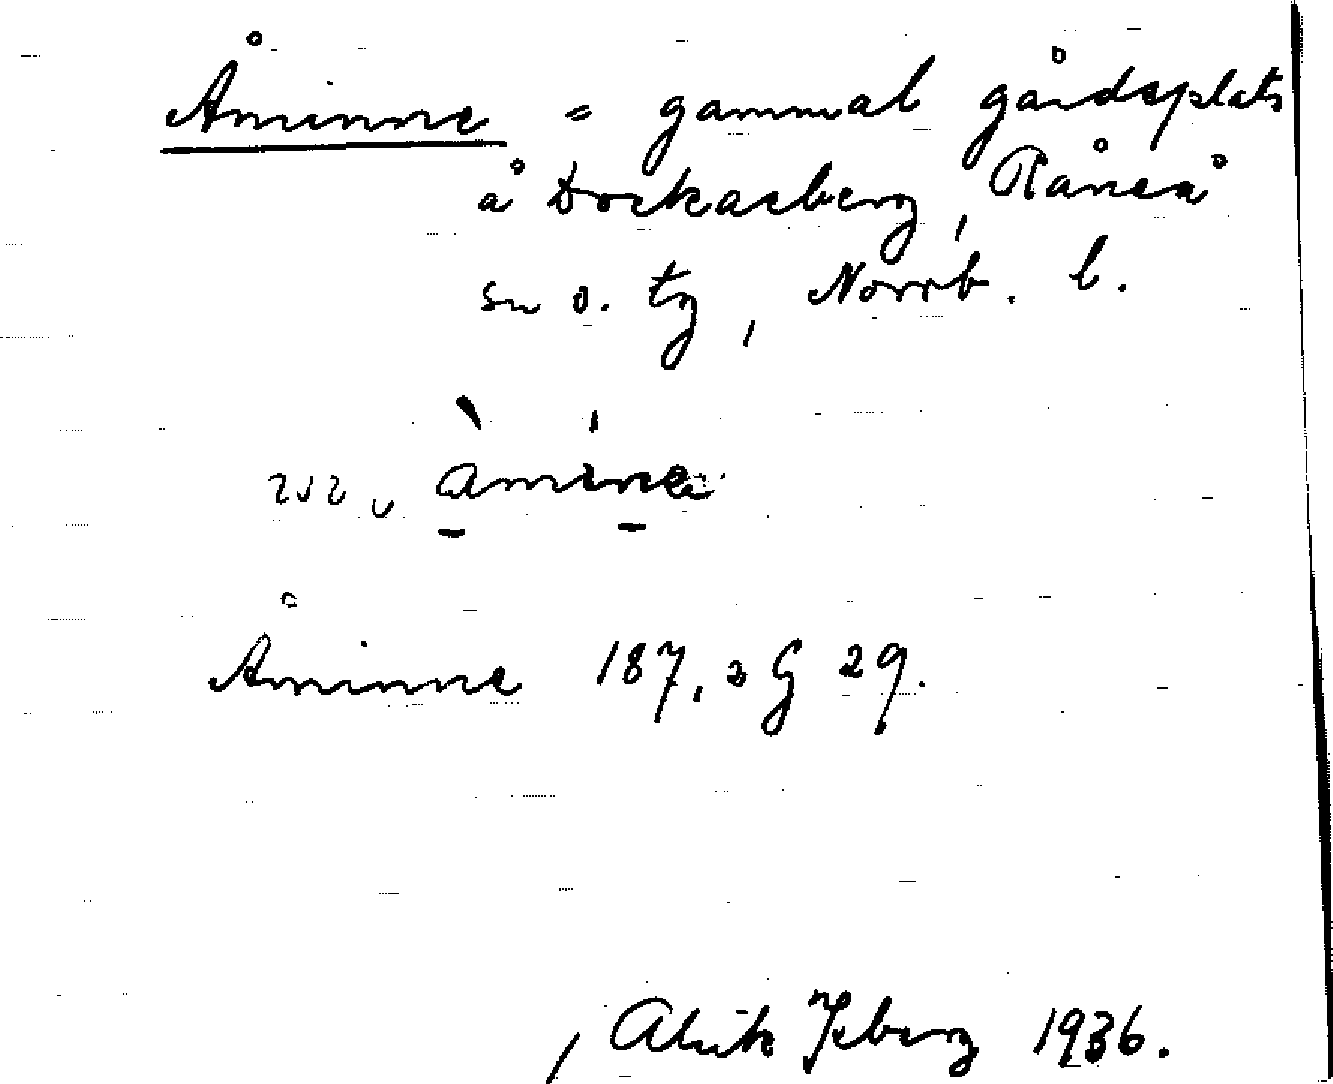 Åminne = gammal gårdsplats
å Dockasberg, Råneå
sn o. tg, Norrb. l.
åmine
Åminne 187, 2 G 29.
, Alrik Isberg 1936.